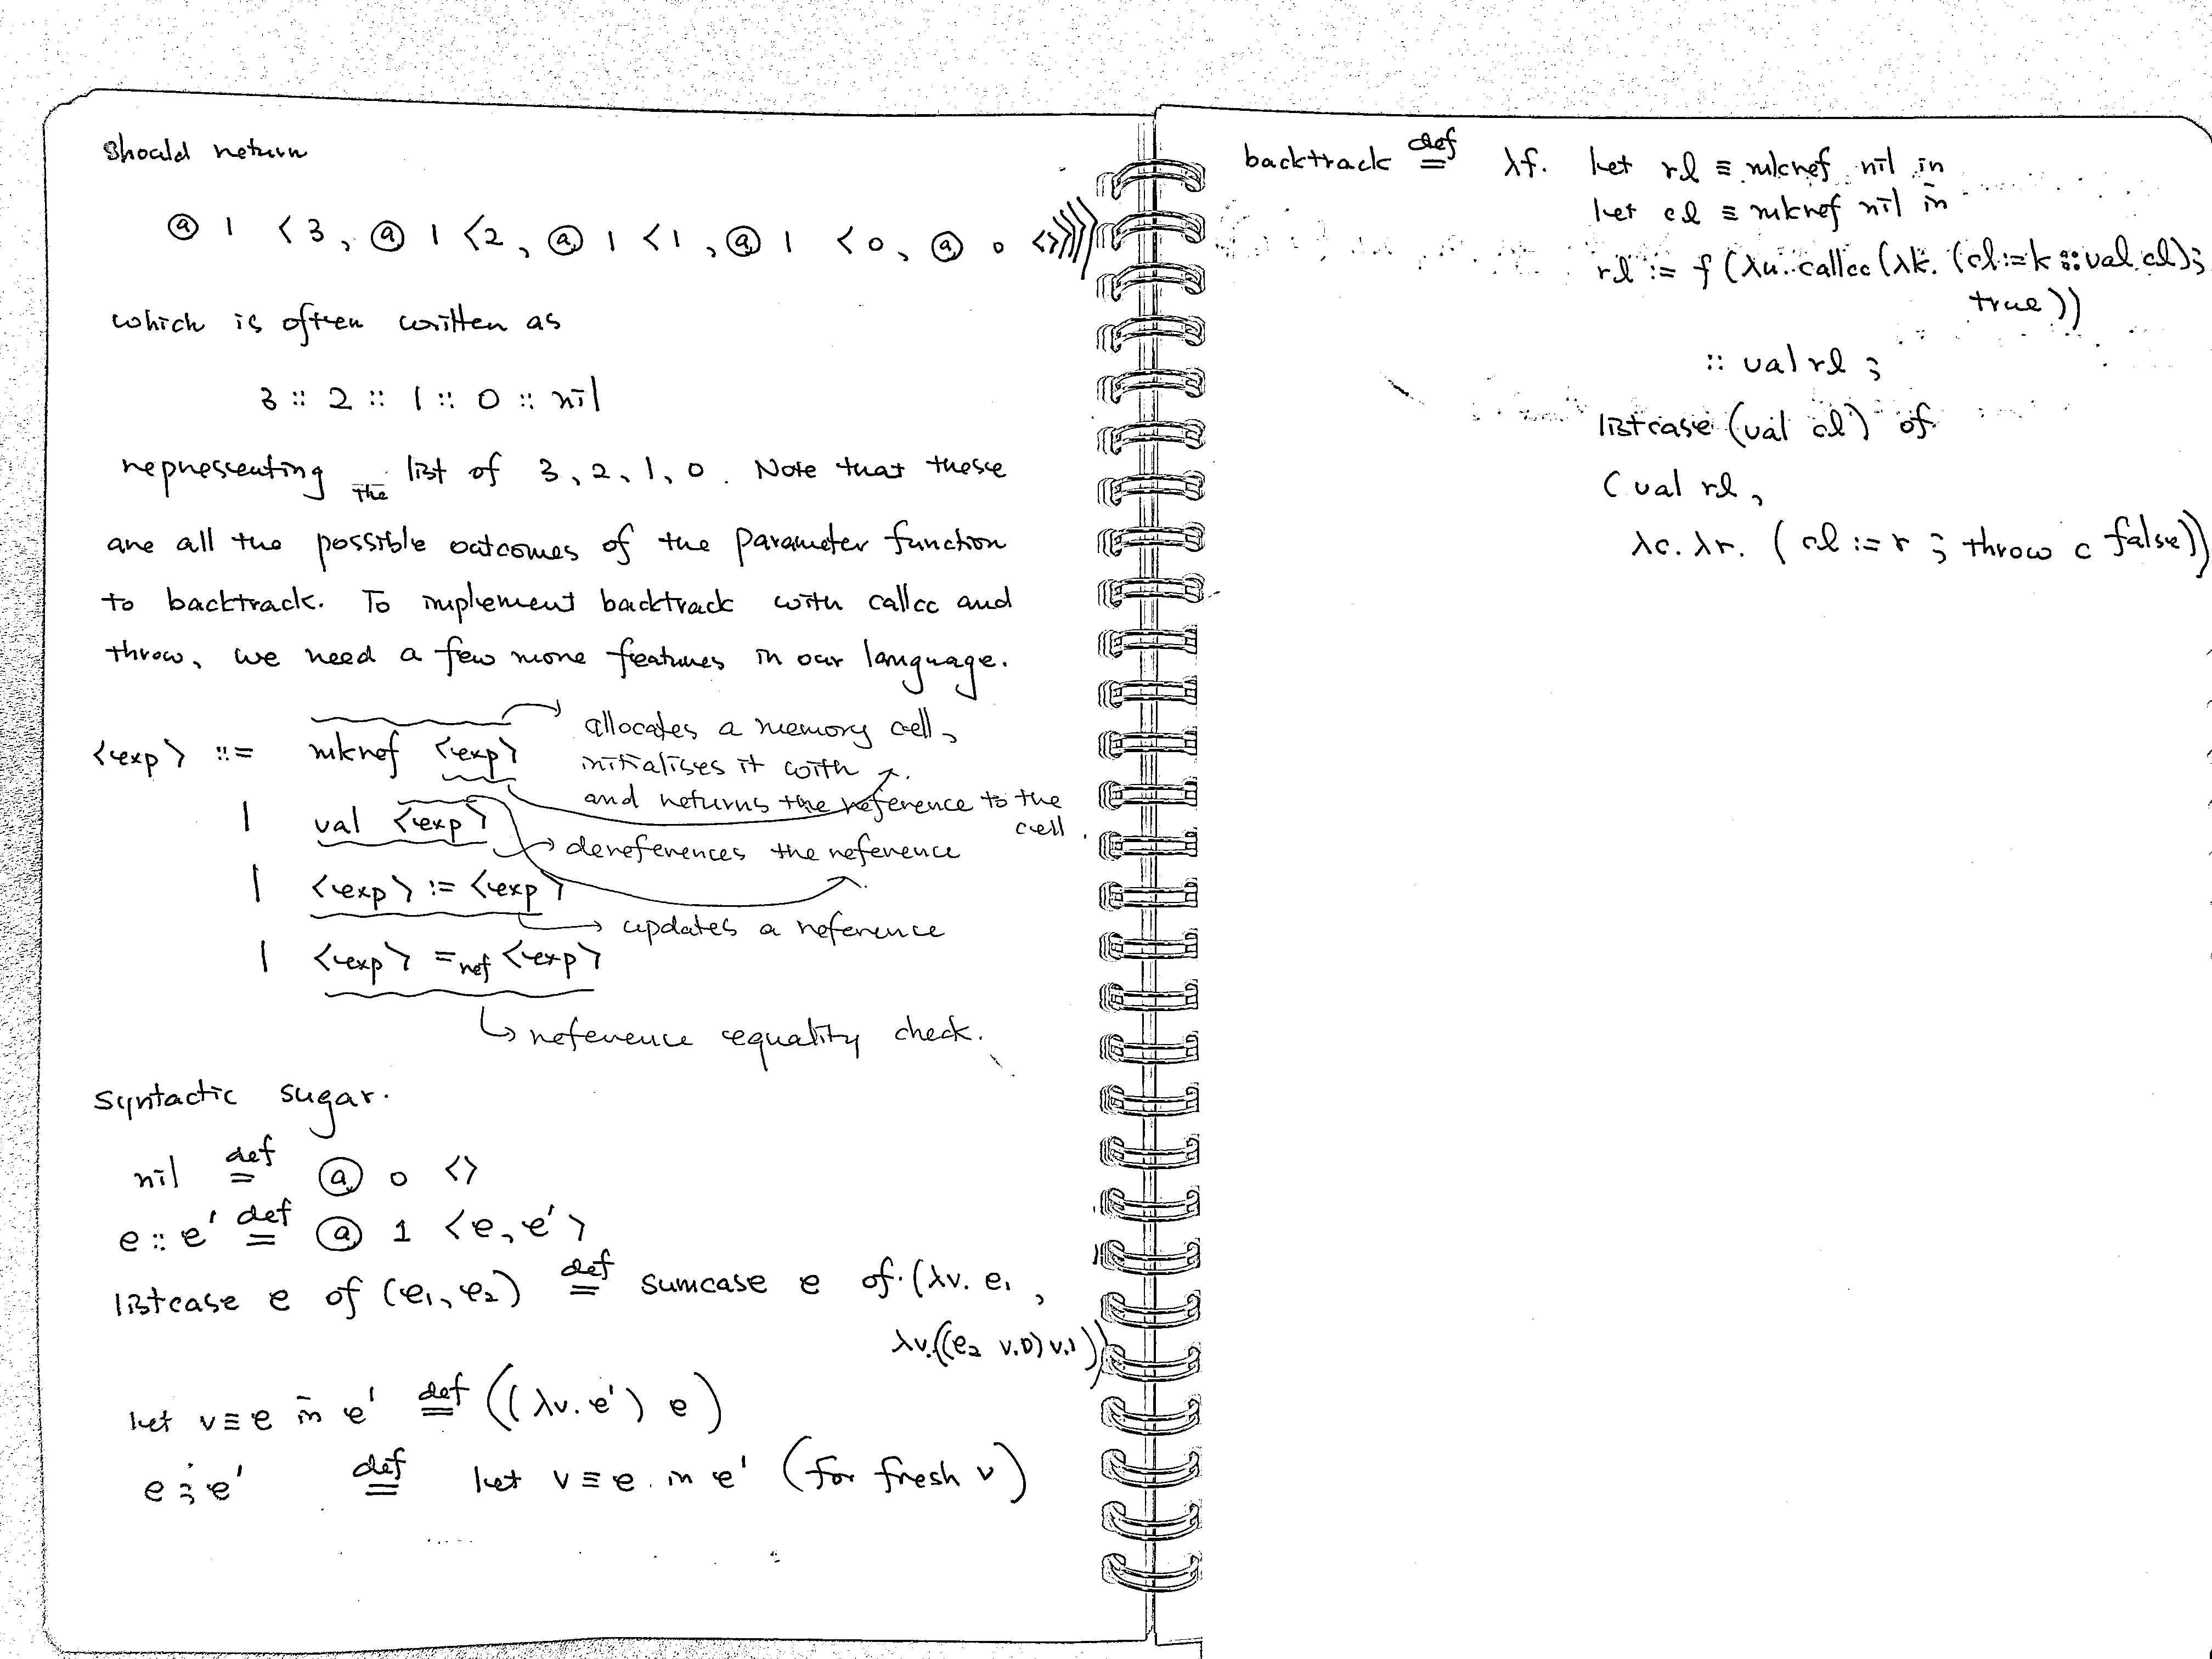 should return
@ 1 <3, @ 1 <2, @ 1 <1, @ 1 <0, @ 0 <>>>>>
which is often written as
3 :: 2 :: 1 :: 0 :: nil
representing the list of 3, 2, 1, 0. Note that these
are all the possible outcomes of the parameter function
to backtrack. To implement backtrack with callcc and
throw, we need a few more features in our language.
<exp> ::= mkref <exp> → allocates a memory cell,
initialises it with
and returns the reference to the cell.
| val <exp> → dereferences the reference
| <exp> := <exp> → updates a reference
| <exp> =ref <exp>
↳ reference equality check.
Syntactic sugar.
nil def= @ 0 <>
e :: e' def= @ 1 <e, e'>
listcase e of (e₁, e₂) def= sumcase e of (λv. e₁,
λv.((e₂ v.0) v.1))
let v ≡ e in e' def= ((λv. e') e)
e ; e' def= let v ≡ e in e' (for fresh v)
backtrack def= λf. let rl ≡ mkref nil in
let cl ≡ mkref nil in
rl := f (λu. callcc (λk. (cl := k :: val cl);
true))
:: val rl ;
listcase (val cl) of
(val rl,
λc. λr. (cl := r ; throw c false))